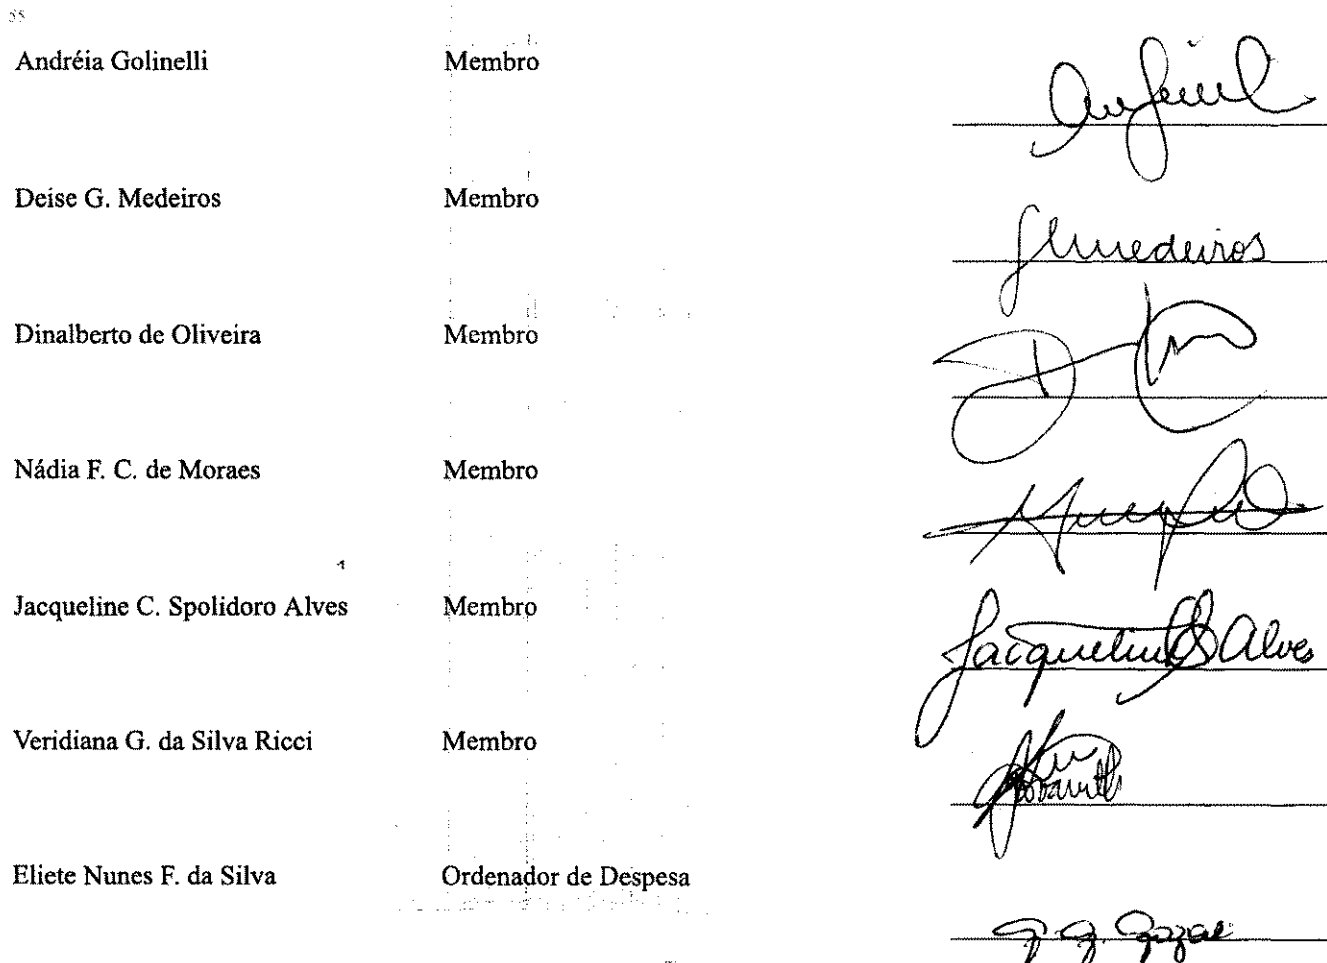 Andréia Golinelli Membro
Deise G. Medeiros Membro
Gmedeiros
Dinalberto de Oliveira Membro
Nádia F. C. de Moraes Membro
Jacqueline C. Spolidoro Alves Membro
Jacqueline CS Alves
Veridiana G. da Silva Ricci Membro
Eliete Nunes F. da Silva Ordenador de Despesa